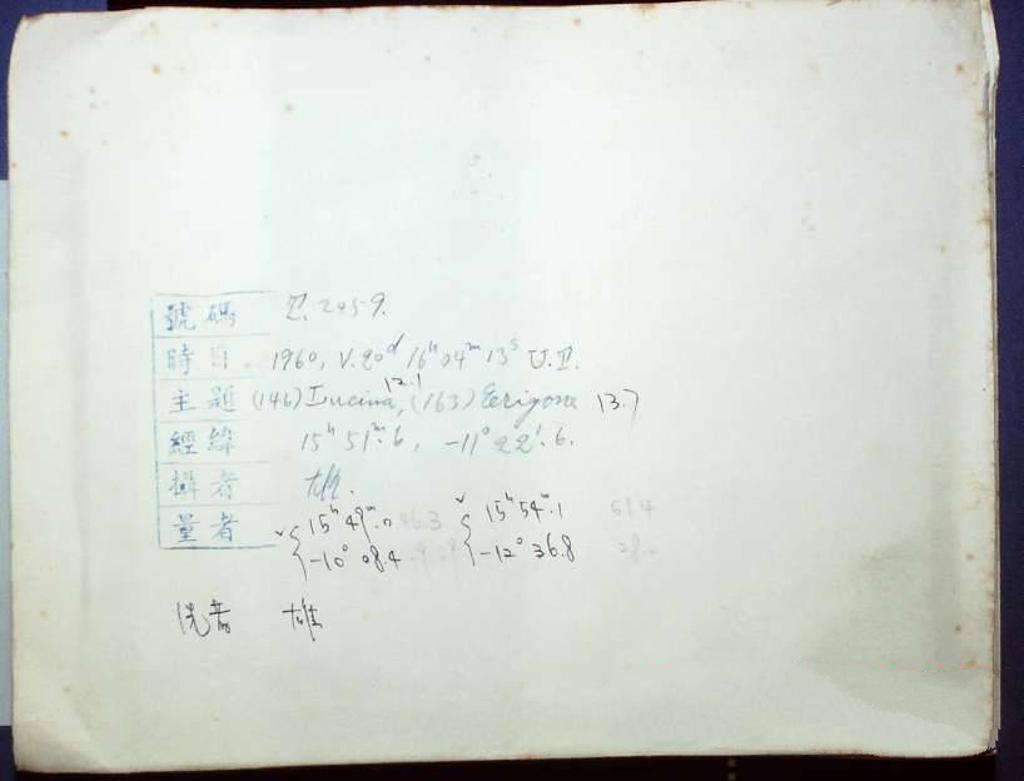 號碼 P. 2059.
時日 1960, V. 20ᵈ 16ʰ 04ᵐ 13ˢ U.T.
主題 (146) Lucina 12.1, (163) Erigone 13.7
經緯 15ʰ 51ᵐ.6, -11° 22'.6.
攝者 雄.
量者 15ʰ 49ᵐ.0 15ʰ 54ᵐ.1
-10° 08.4 -12° 36.8
洗者 雄